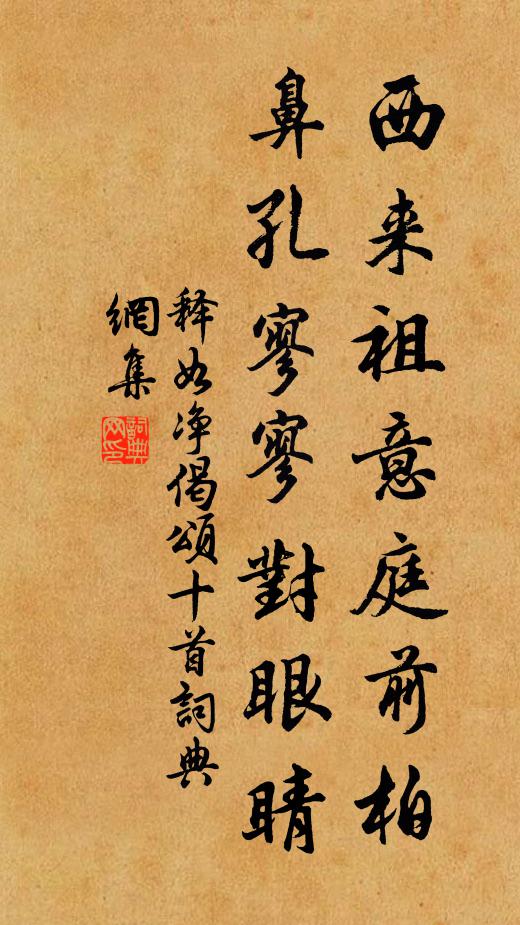 西来祖意庭前柏
鼻孔寥寥對眼睛
释如净偈頌十首詞典
網集
詞典
网印